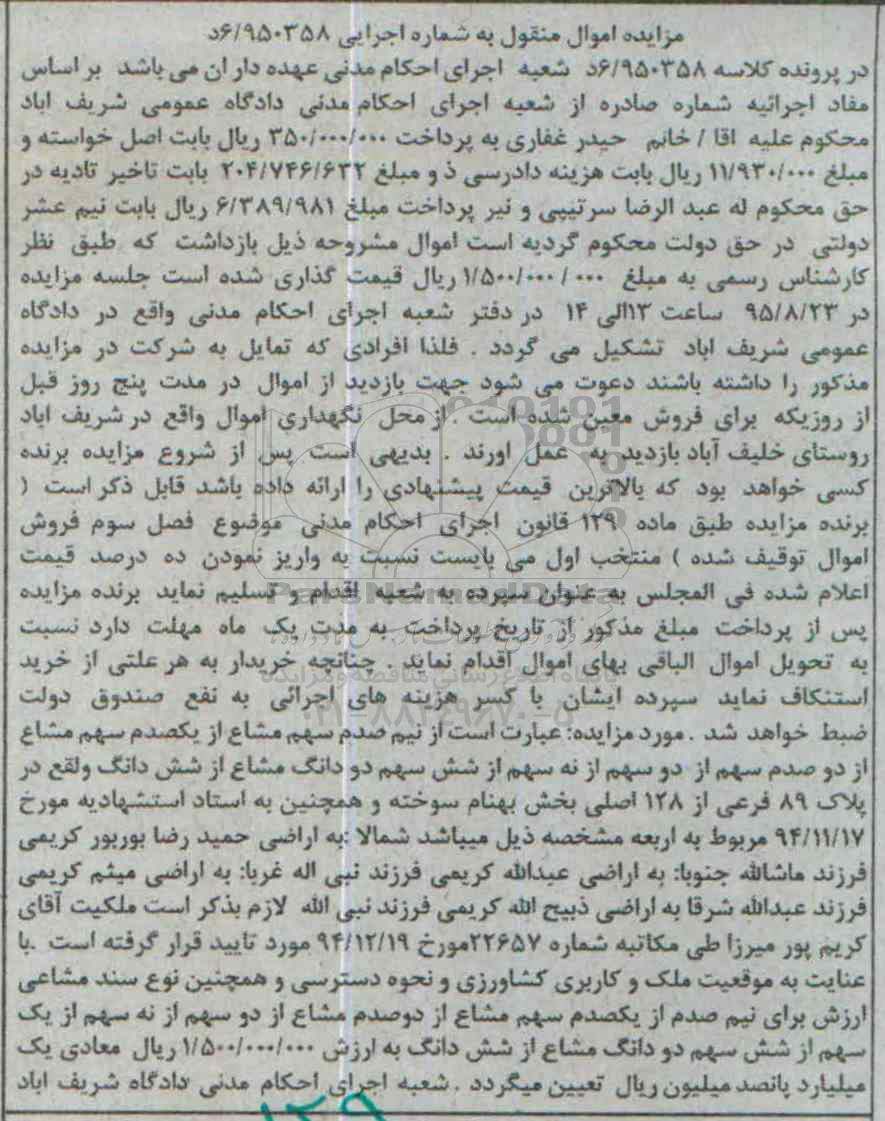 مزایده اموال منقول به شماره اجرایی ۶/۹۵۰۳۵۸د
در پرونده کلاسه ۶/۹۵۰۳۵۸د شعبه اجرای احکام مدنی عهده دار ان می باشد بر اساس
مفاد اجرائیه شماره صادره از شعبه اجرای احکام مدنی دادگاه عمومی شریف اباد
محکوم علیه اقا / خانم حیدر غفاری به پرداخت ۳۵۰/۰۰۰/۰۰۰ ریال بابت اصل خواسته و
مبلغ ۱۱/۹۳۰/۰۰۰ ریال بابت هزینه دادرسی ذ و مبلغ ۲۰۴/۷۴۶/۶۳۲ بابت تاخیر تادیه در
حق محکوم له عبد الرضا سرتیپی و نیر پرداخت مبلغ ۶/۳۸۹/۹۸۱ ریال بابت نیم عشر
دولتی در حق دولت محکوم گردیه است اموال مشروحه ذیل بازداشت که طبق نظر
کارشناس رسمی به مبلغ ۱/۵۰۰/۰۰۰/۰۰۰ ریال قیمت گذاری شده است جلسه مزایده
در ۹۵/۸/۲۳ ساعت ۱۳الی ۱۴ در دفتر شعبه اجرای احکام مدنی واقع در دادگاه
عمومی شریف اباد تشکیل می گردد . فلذا افرادی که تمایل به شرکت در مزایده
مذکور را داشته باشند دعوت می شود جهت بازدید از اموال در مدت پنج روز قبل
از روزیکه برای فروش معین شده است . از محل نگهداری اموال واقع در شریف اباد
روستای خلیف آباد بازدید به عمل اورند . بدیهی است پس از شروع مزایده برنده
کسی خواهد بود که بالاترین قیمت پیشنهادی را ارائه داده باشد قابل ذکر است (
برنده مزایده طبق ماده ۱۲۹ قانون اجرای احکام مدنی موضوع فصل سوم فروش
اموال توقیف شده ) منتخب اول می بایست نسبت به واریز نمودن ده درصد قیمت
اعلام شده فی المجلس به عنوان سپرده به شعبه اقدام و تسلیم نماید برنده مزایده
پس از پرداخت مبلغ مذکور از تاریخ پرداخت به مدت یک ماه مهلت دارد نسبت
به تحویل اموال الباقی بهای اموال اقدام نماید . چنانچه خریدار به هر علتی از خرید
استنکاف نماید سپرده ایشان با کسر هزینه های اجرائی به نفع صندوق دولت
ضبط خواهد شد . مورد مزایده: عبارت است از نیم صدم سهم مشاع از یکصدم سهم مشاع
از دو صدم سهم از دو سهم از نه سهم از شش سهم دو دانگ مشاع از شش دانگ ولقع در
پلاک ۸۹ فرعی از ۱۲۸ اصلی بخش بهنام سوخته و همچنین به استاد استشهادیه مورخ
۹۴/۱۱/۱۷ مربوط به اربعه مشخصه ذیل میباشد شمالا :به اراضی حمید رضا بوربور کریمی
فرزند ماشالله جنوبا: به اراضی عبدالله کریمی فرزند نبی اله غربا: به اراضی میثم کریمی
فرزند عبدالله شرقا به اراضی ذبیح الله کریمی فرزند نبی الله لازم بذکر است ملکیت آقای
کریم پور میرزا طی مکاتبه شماره ۲۲۶۵۷مورخ ۹۴/۱۲/۱۹ مورد تایید قرار گرفته است .با
عنایت به موقعیت ملک و کاربری کشاورزی و نحوه دسترسی و همچنین نوع سند مشاعی
ارزش برای نیم صدم از یکصدم سهم مشاع از دوصدم مشاع از دو سهم از نه سهم از یک
سهم از شش سهم دو دانگ مشاع از شش دانگ به ارزش ۱/۵۰۰/۰۰۰/۰۰۰ ریال معادی یک
میلیارد پانصد میلیون ریال تعیین میگردد .شعبه اجرای احکام مدنی دادگاه شریف اباد